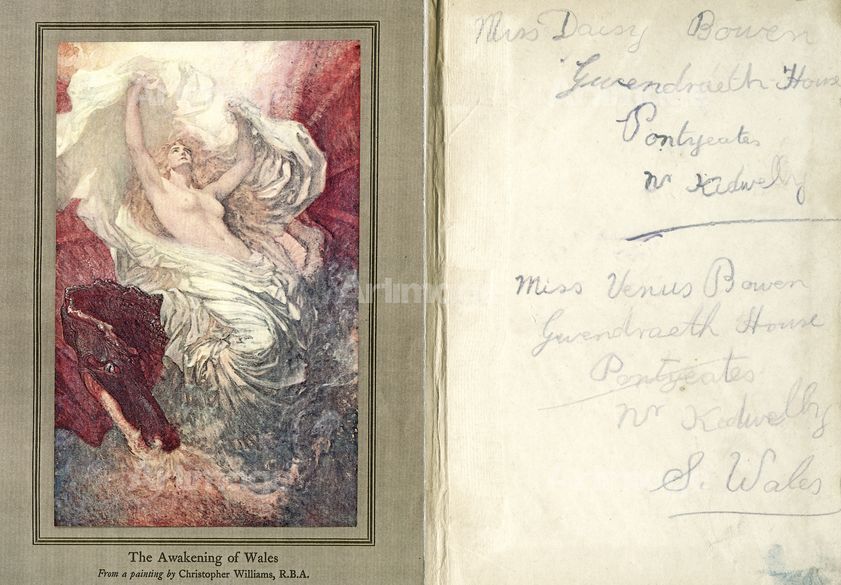 The Awakening of Wales
From a painting by Christopher Williams, R.B.A.
Miss Daisy Bowen
Gwendraeth House
Pontyeates
Nr Kidwelly
Miss Venus Bowen
Gwendraeth House
Pontyeates
Nr Kidwelly
S. Wales